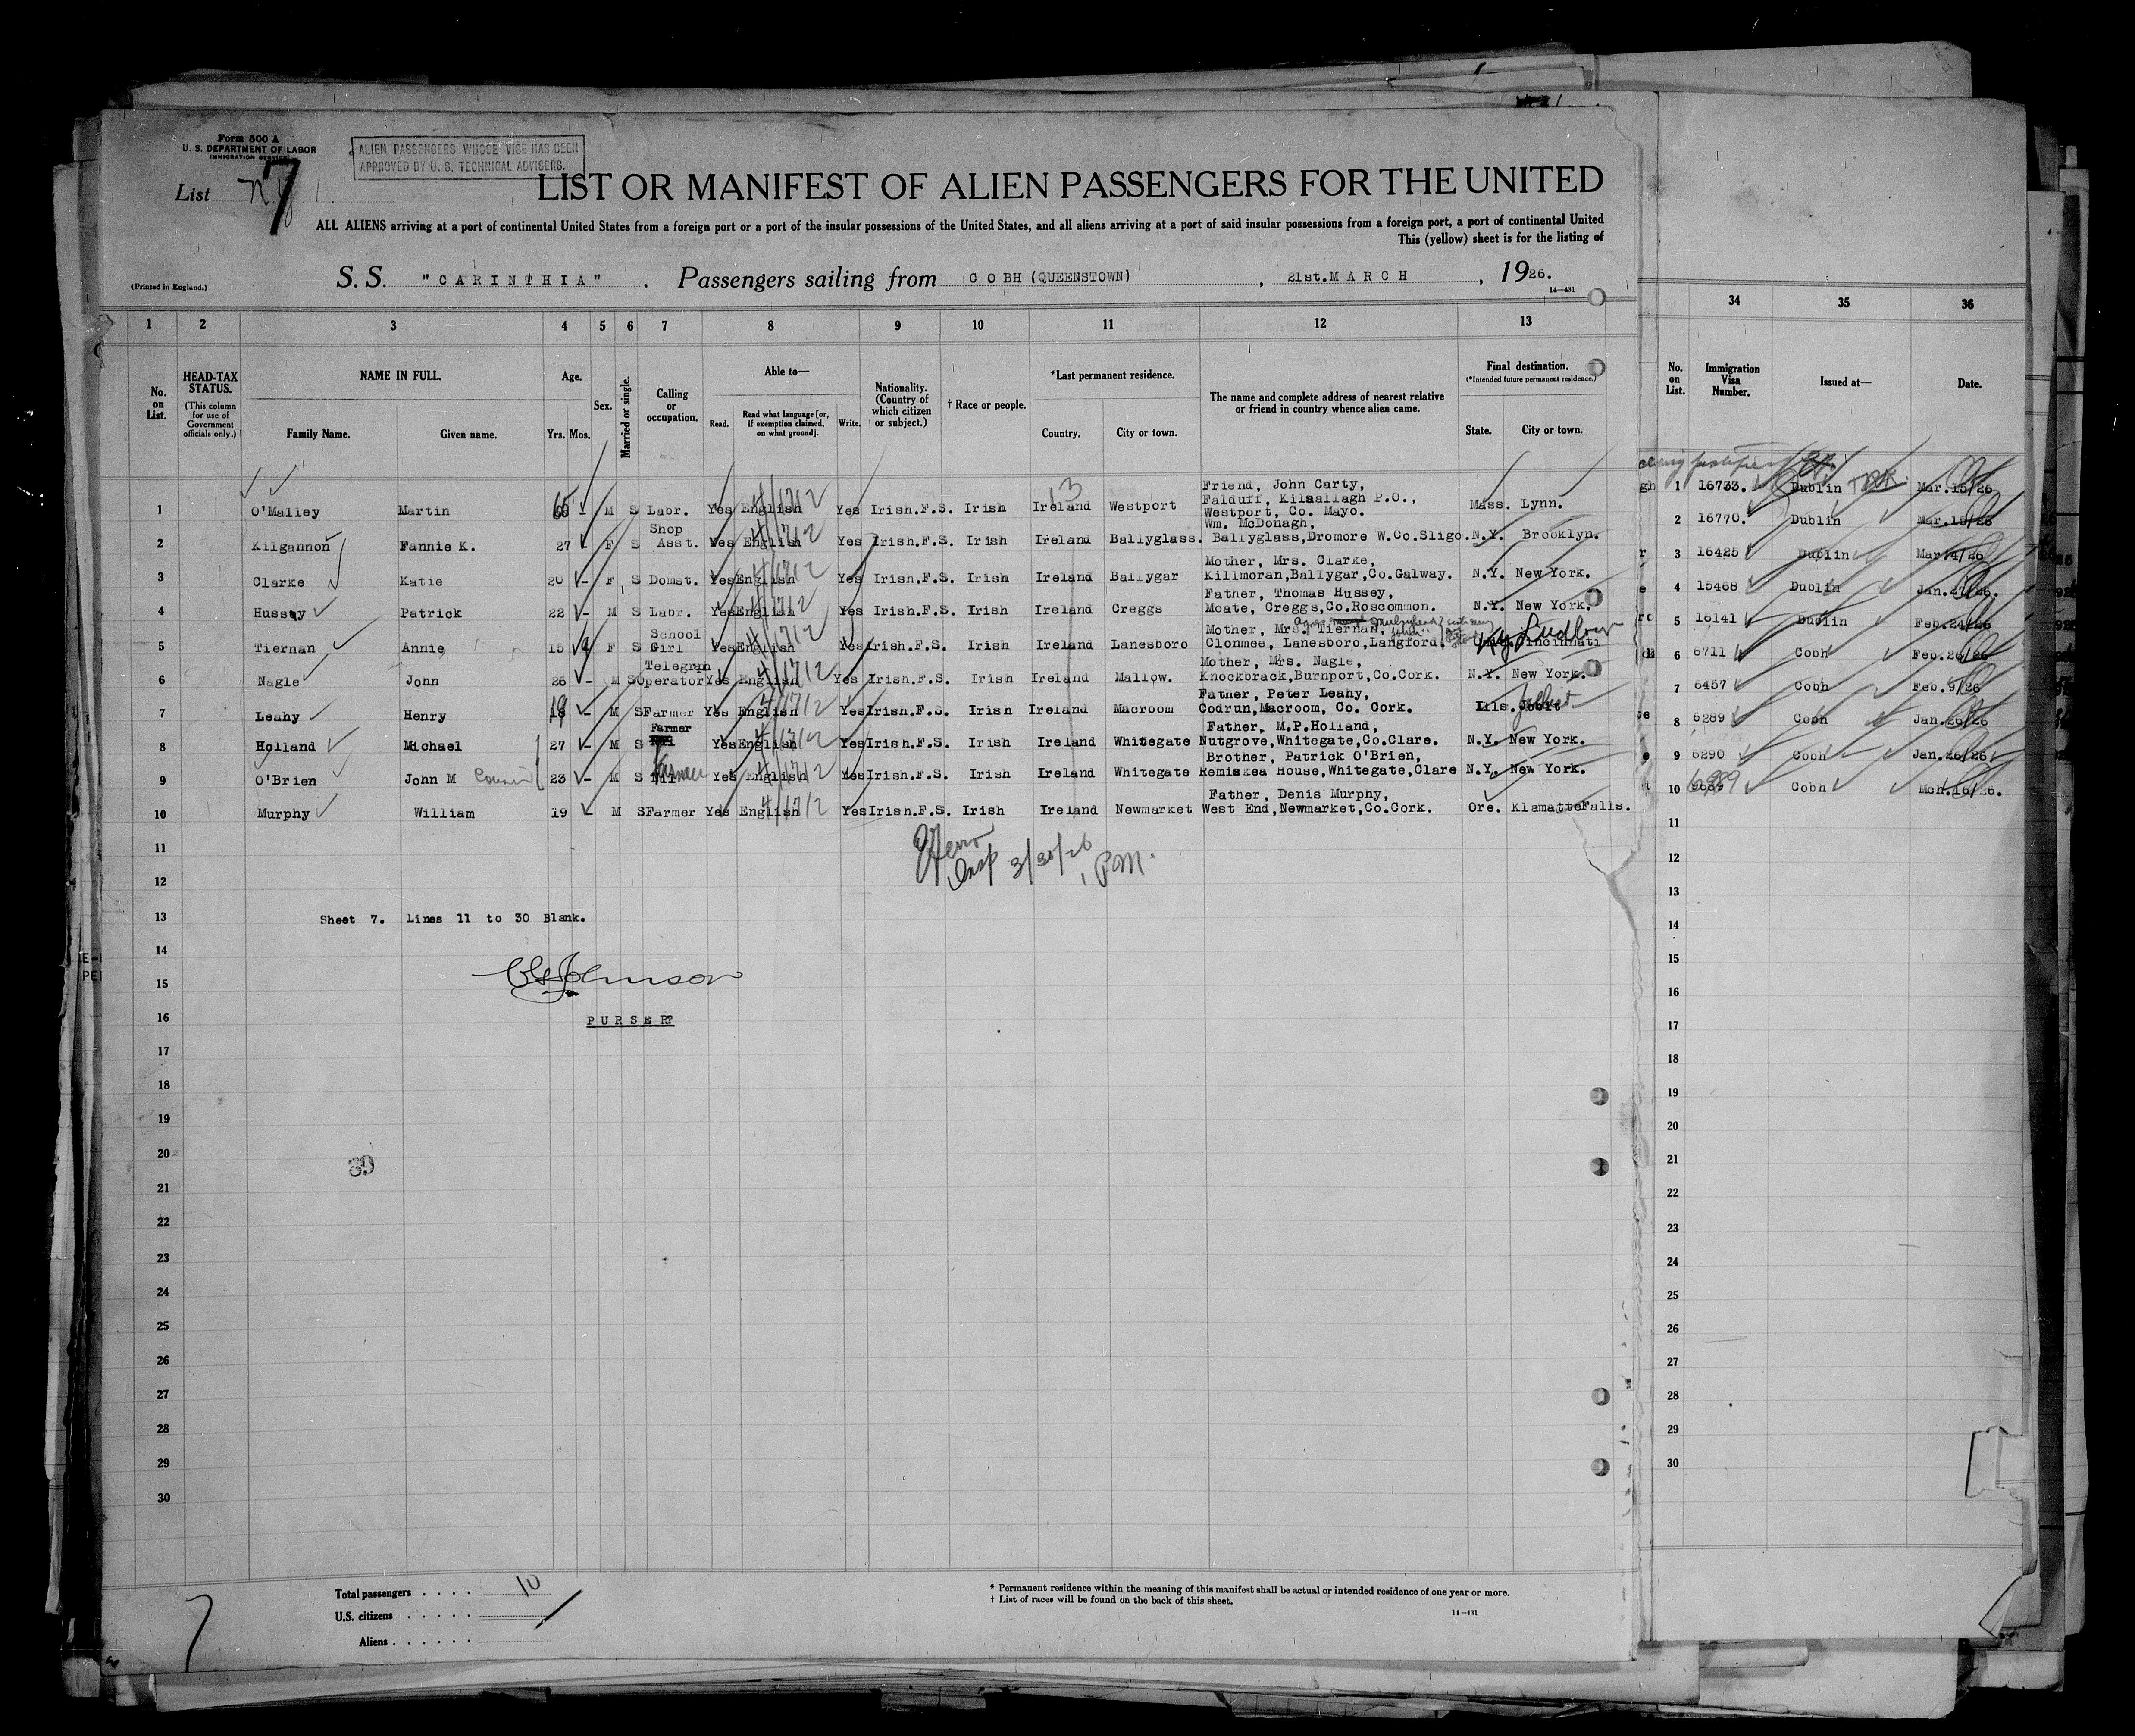 Form 500 A
U. S. DEPARTMENT OF LABOR
IMMIGRATION SERVICE
ALIEN PASSENGERS WHOSE VICE HAS BEEN
APPROVED BY U. S. TECHNICAL ADVISERS.
List 7
LIST OR MANIFEST OF ALIEN PASSENGERS FOR THE UNITED
ALL ALIENS arriving at a port of continental United States from a foreign port or a port of the insular possessions of the United States, and all aliens arriving at a port of said insular possessions from a foreign port, a port of continental United
This (yellow) sheet is for the listing of
(Printed in England.)
S. S. "CARINTHIA". Passengers sailing from COBH (QUEENSTOWN), 21st. MARCH, 1926.
14—431
1 2 3 4 5 6 7 8 9 10 11 12 13 34 35 36
No. on List.
HEAD-TAX STATUS.
(This column for use of Government officials only.)
NAME IN FULL.
Family Name. Given name.
Age.
Yrs. Mos.
Sex.
Married or single.
Calling or occupation.
Able to—
Read. Read what language [or, if exemption claimed, on what ground]. Write.
Nationality. (Country of which citizen or subject.)
† Race or people.
*Last permanent residence.
Country. City or town.
The name and complete address of nearest relative or friend in country whence alien came.
Final destination.
(*Intended future permanent residence.)
State. City or town.
No. on List.
Immigration Visa Number.
Issued at—
Date.
Friend, John Carty,
Falduff, Kilsallagh P.O.,
1 O'Malley Martin M S Labr. Yes English Yes Irish.F.S. Irish Ireland Westport Westport, Co. Mayo. Mass. Lynn. 1 16733. Dublin Mar.15/26
Shop Wm. McDonagh,
2 Kilgannon Fannie K. 27 - F S Asst. Yes English Yes Irish.F.S. Irish Ireland Ballyglass. Ballyglass,Dromore W.Co.Sligo. N.Y. Brooklyn. 2 16770. Dublin Mar.15/26
Mother, Mrs. Clarke,
3 Clarke Katie 20 - F S Domst. Yes English Yes Irish.F.S. Irish Ireland Ballygar Killmoran,Ballygar,Co.Galway. N.Y. New York. 3 16425 Dublin Mar.4/26
Father, Thomas Hussey,
4 Hussey Patrick 22 - M S Labr. Yes English Yes Irish.F.S. Irish Ireland Creggs Moate, Creggs,Co.Roscommon. N.Y. New York. 4 15468 Dublin Jan.27/26.
School Mother, Mrs. Tiernan,
5 Tiernan Annie 15 F S Girl Yes English Yes Irish.F.S. Irish Ireland Lanesboro Clonmee, Lanesboro,Langford, Ky Ludlow Cincinnati 5 16141 Dublin Feb.24/26
Telegraph Mother, Mrs. Nagle,
6 Nagle John 26 - M S Operator Yes English Yes Irish.F.S. Irish Ireland Mallow. Knockbrack,Burnport,Co.Cork. N.Y. New York. 6 6711 Cobh Feb.26/26
Father, Peter Leahy,
7 Leahy Henry - M S Farmer Yes English Yes Irish.F.S. Irish Ireland Macroom Codrun,Macroom, Co. Cork. Ills. Joliet 7 6457 Cobh Feb.9/26
Farmer Father, M.P.Holland,
8 Holland Michael 27 - M S Yes English Yes Irish.F.S. Irish Ireland Whitegate Nutgrove,Whitegate,Co.Clare. N.Y. New York. 8 6289 Cobh Jan.26/26
Brother, Patrick O'Brien,
9 O'Brien John M Cousin 23 - M S Farmer Yes English Yes Irish.F.S. Irish Ireland Whitegate Hemiskea House,Whitegate,Clare N.Y. New York. 9 6290 Cobh Jan.26/26
Father, Denis Murphy,
10 Murphy William 19 - M S Farmer Yes English Yes Irish.F.S. Irish Ireland Newmarket West End,Newmarket,Co.Cork. Ore. KlamatteFalls. 10 Cobh Mch.16/26.
11 11
Insp 3/30/26 PM.
12 12
13 Sheet 7. Lines 11 to 30 Blank. 13
14 14
15 Johnson 15
16 PURSER 16
17 17
18 18
19 19
20 39 20
21 21
22 22
23 23
24 24
25 25
26 26
27 27
28 28
29 29
30 30
Total passengers . . . . 10
U.S. citizens . . . . .
Aliens . . . . . .
* Permanent residence within the meaning of this manifest shall be actual or intended residence of one year or more.
† List of races will be found on the back of this sheet.
14—431